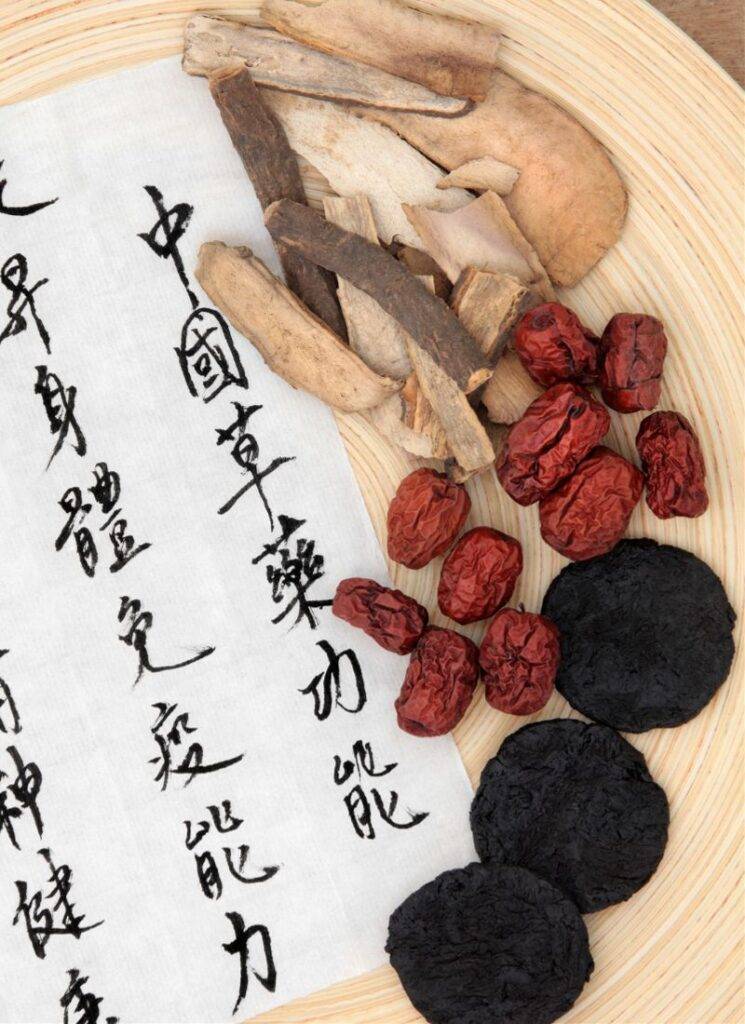 中國草藥功能
昇身體免疫能力
神健康